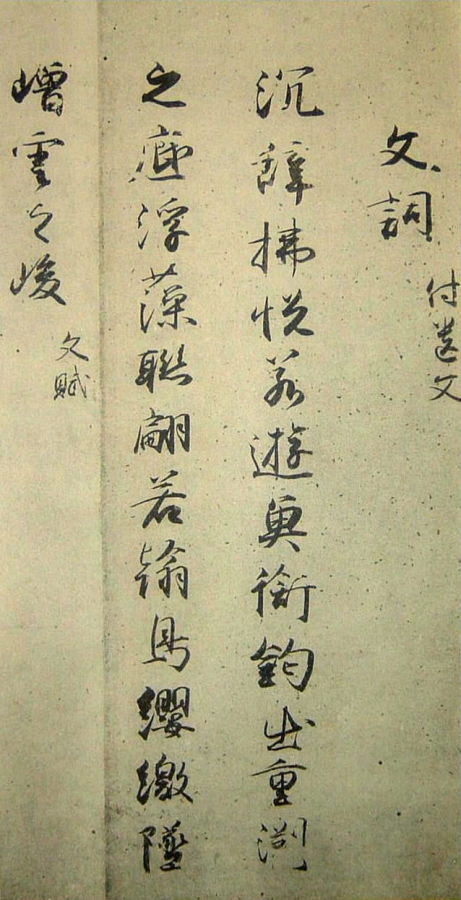 文詞
付遺文
沉辞拂悦若遊魚銜鉤出重渕
之底浮藻聯翩若翰鳥纓繳墜
嶒雲之峻
文賦